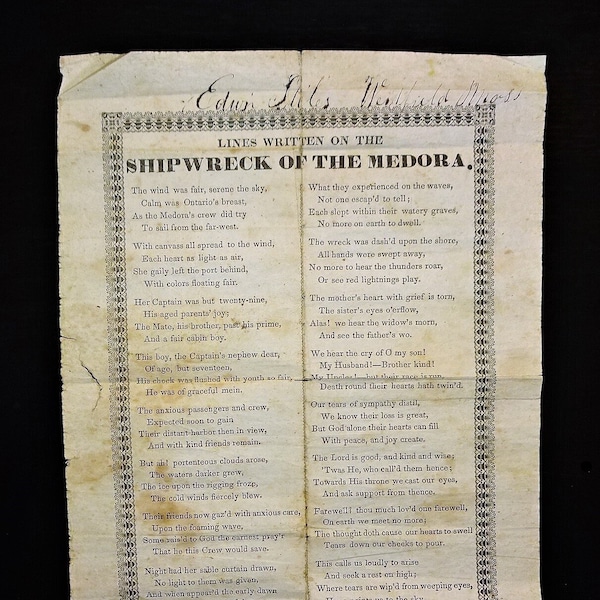 Westfield Mass
LINES WRITTEN ON THE
SHIPWRECK OF THE MEDORA.
The wind was fair, serene the sky,
Calm was Ontario's breast,
As the Medora's crew did try
To sail from the far-west.
With canvass all spread to the wind,
Each heart as light as air,
She gaily left the port behind,
With colors floating fair.
Her Captain was but twenty-nine,
His aged parents' joy;
The Mate, his brother, past his prime,
And a fair cabin boy.
This boy, the Captain's nephew dear,
Of age, but seventeen,
His cheek was flushed with youth so fair,
He was of graceful mein.
The anxious passengers and crew,
Expected soon to gain
Their distant harbor then in view,
And with kind friends remain.
But ah! portenteous clouds arose,
The waters darker grew,
The ice upon the rigging froze,
The cold winds fiercely blew.
Their friends now gaz'd with anxious care,
Upon the foaming wave,
to God the earnest pray'r
That he this Crew would save.
Night had her sable curtain drawn,
No light to them was given,
And when appear'd the early dawn
What they experienced on the waves,
Not one escap'd to tell;
Each slept within their watery graves,
No more on earth to dwell.
The wreck was dash'd upon the shore,
All hands were swept away,
No more to hear the thunders roar,
Or see red lightnings play.
The mother's heart with grief is torn,
The sister's eyes o'erflow,
Alas! we hear the widow's morn,
And see the father's wo.
We hear the cry of O my son!
My Husband!—Brother kind!
My Uncles!—but their race is run,
Death round their hearts hath twin'd.
Our tears of sympathy distil,
We know their loss is great,
But God alone their hearts can fill
With peace, and joy create.
The Lord is good, and kind and wise;
'Twas He, who call'd them hence;
Towards His throne we cast our eyes,
And ask support from thence.
Farewell! thou much lov'd one farewell,
On earth we meet no more;
The thought doth cause our hearts to swell
Tears down our cheeks to pour.
This calls us loudly to arise
And seek a rest on high;
Where tears are wip'd from weeping eyes,
to the sky